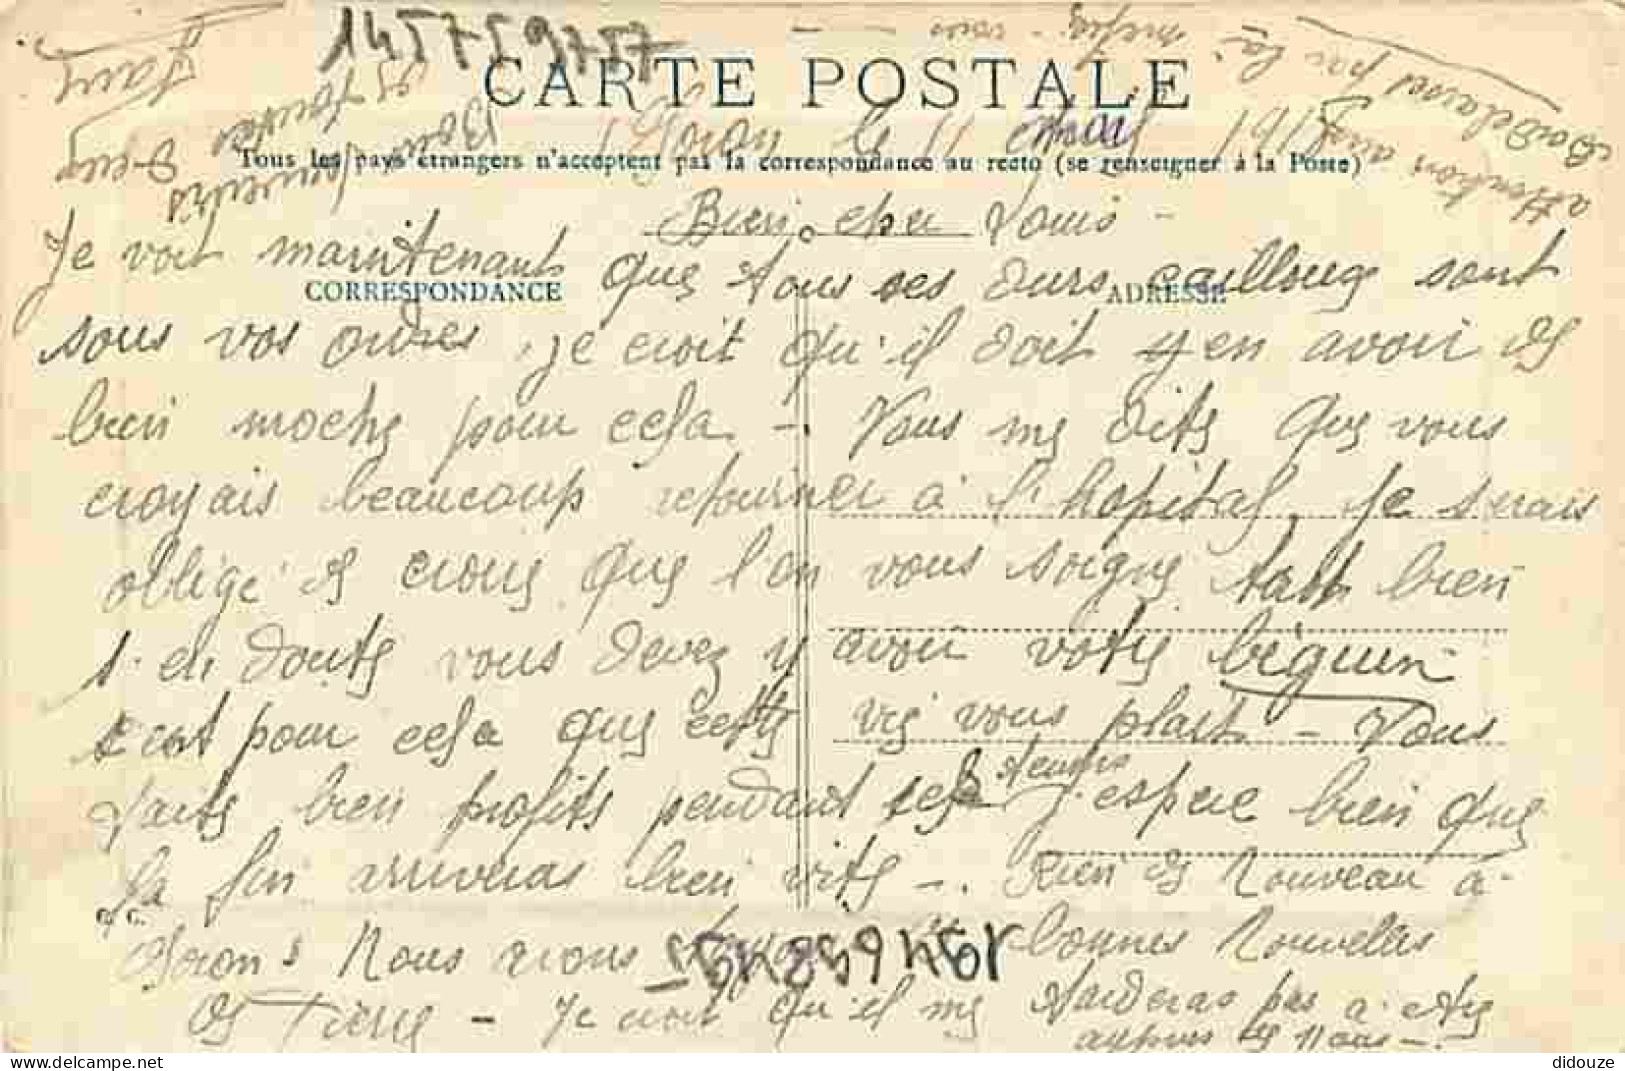 1457579757
CARTE POSTALE
le 11
Tous les pays étrangers n'acceptent pas la correspondance au recto (se renseigner à la Poste)
Bien cher Louis
Je voit maintenant que tous ses durs cailloux sont
CORRESPONDANCE ADRESSE
sous vos ordres, je croit qu'il doit y en avoir de
bien moche pour cela - Vous me dite que vous
croyais beaucoup retourner à l'hopital, Je serais
obligé de croire que l'on vous soigne tant bien
s. en doute vous devez y avoir votre béguin
c'est pour cela que cette vie vous plait - Vous
faite bien profite pendant ce temps J'espere bien que
la fin arriveras bien vite - . Rien de Nouveau à
Nous avons bonnes Nouvelles
de Pierre - Je croit qu'il ne tarderas pas a être
aupres de Nous - .
attention aussi
par là
vous
Bons
Souvenirs